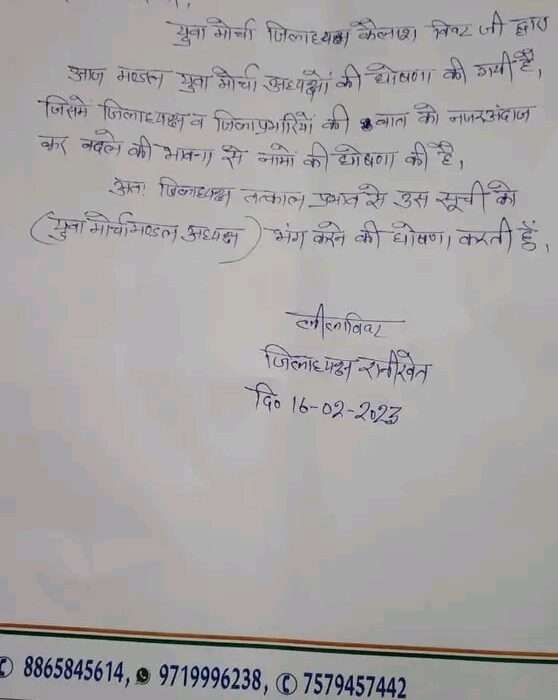 युवा मोर्चा जिलाध्यक्ष कैलाश बिष्ट जी द्वारा
आज मण्डल युवा मोर्चा अध्यक्षों की घोषणा की गयी है,
जिसमें जिलाध्यक्ष व जिलाप्रभारियों की बात को नजरअंदाज
कर बदले की भावना से नामों की घोषणा की है,
अतः जिलाध्यक्ष तत्काल प्रभाव से उस सूची को
(युवा मोर्चा मण्डल अध्यक्ष) भंग करने की घोषणा करती हूँ,
लीला बिष्ट
जिलाध्यक्ष रानीखेत
दि० 16-02-2023
8865845614, 9719996238, 7579457442